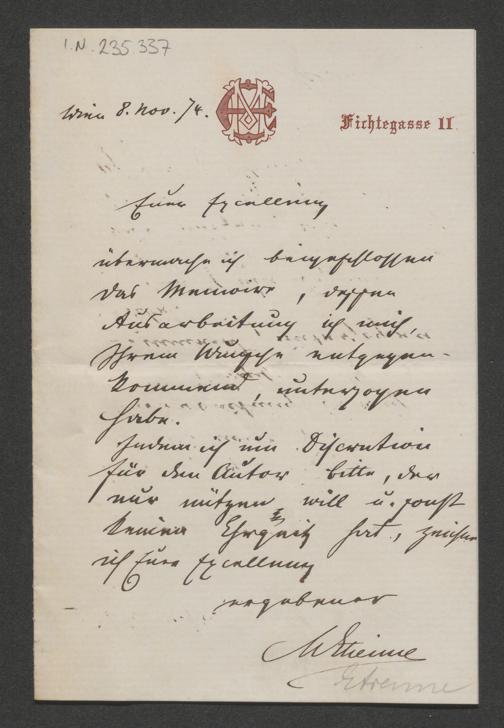 I.N. 235.337
Wien 8. Nov. 74.
Fichtegasse 11
Euer Excellenz
übermache ich beigeschlossen
das Memoire, dessen
Ausarbeitung ich mich,
Ihrem Wunsche entgegen-
kommend, unterzogen
habe.
Indem ich um Discretion
für den Autor bitte, der
nur nützen will u. sonst
keinen Ehrgeiz hat, zeichne
ich Euer Excellenz
ergebener
MEtienne
Etienne